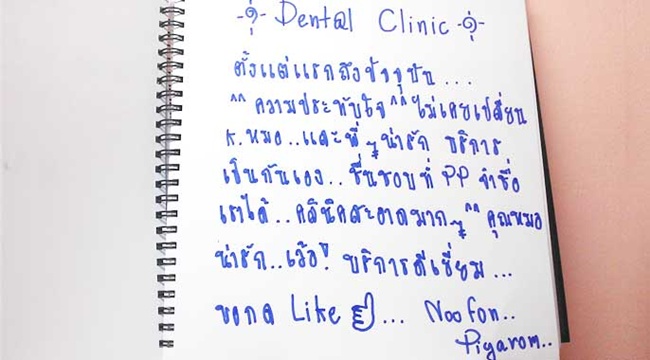 -๑- Dental Clinic -๑-
ตั้งแต่แรกถึงปัจจุบัน...
^^ ความประทับใจ ^^ ไม่เคยเปลี่ยน
ค.หมอ..และพี่ๆน่ารัก บริการ
เป็นกันเอง.. ชื่นชอบที่ PP จำชื่อ
เราได้..คลินิคสะอาดมากๆ ^^ คุณหมอ
น่ารัก..เว้อ! บริการดีเยี่ยม...
ขอกด Like ... Noofon..
Piyarom..